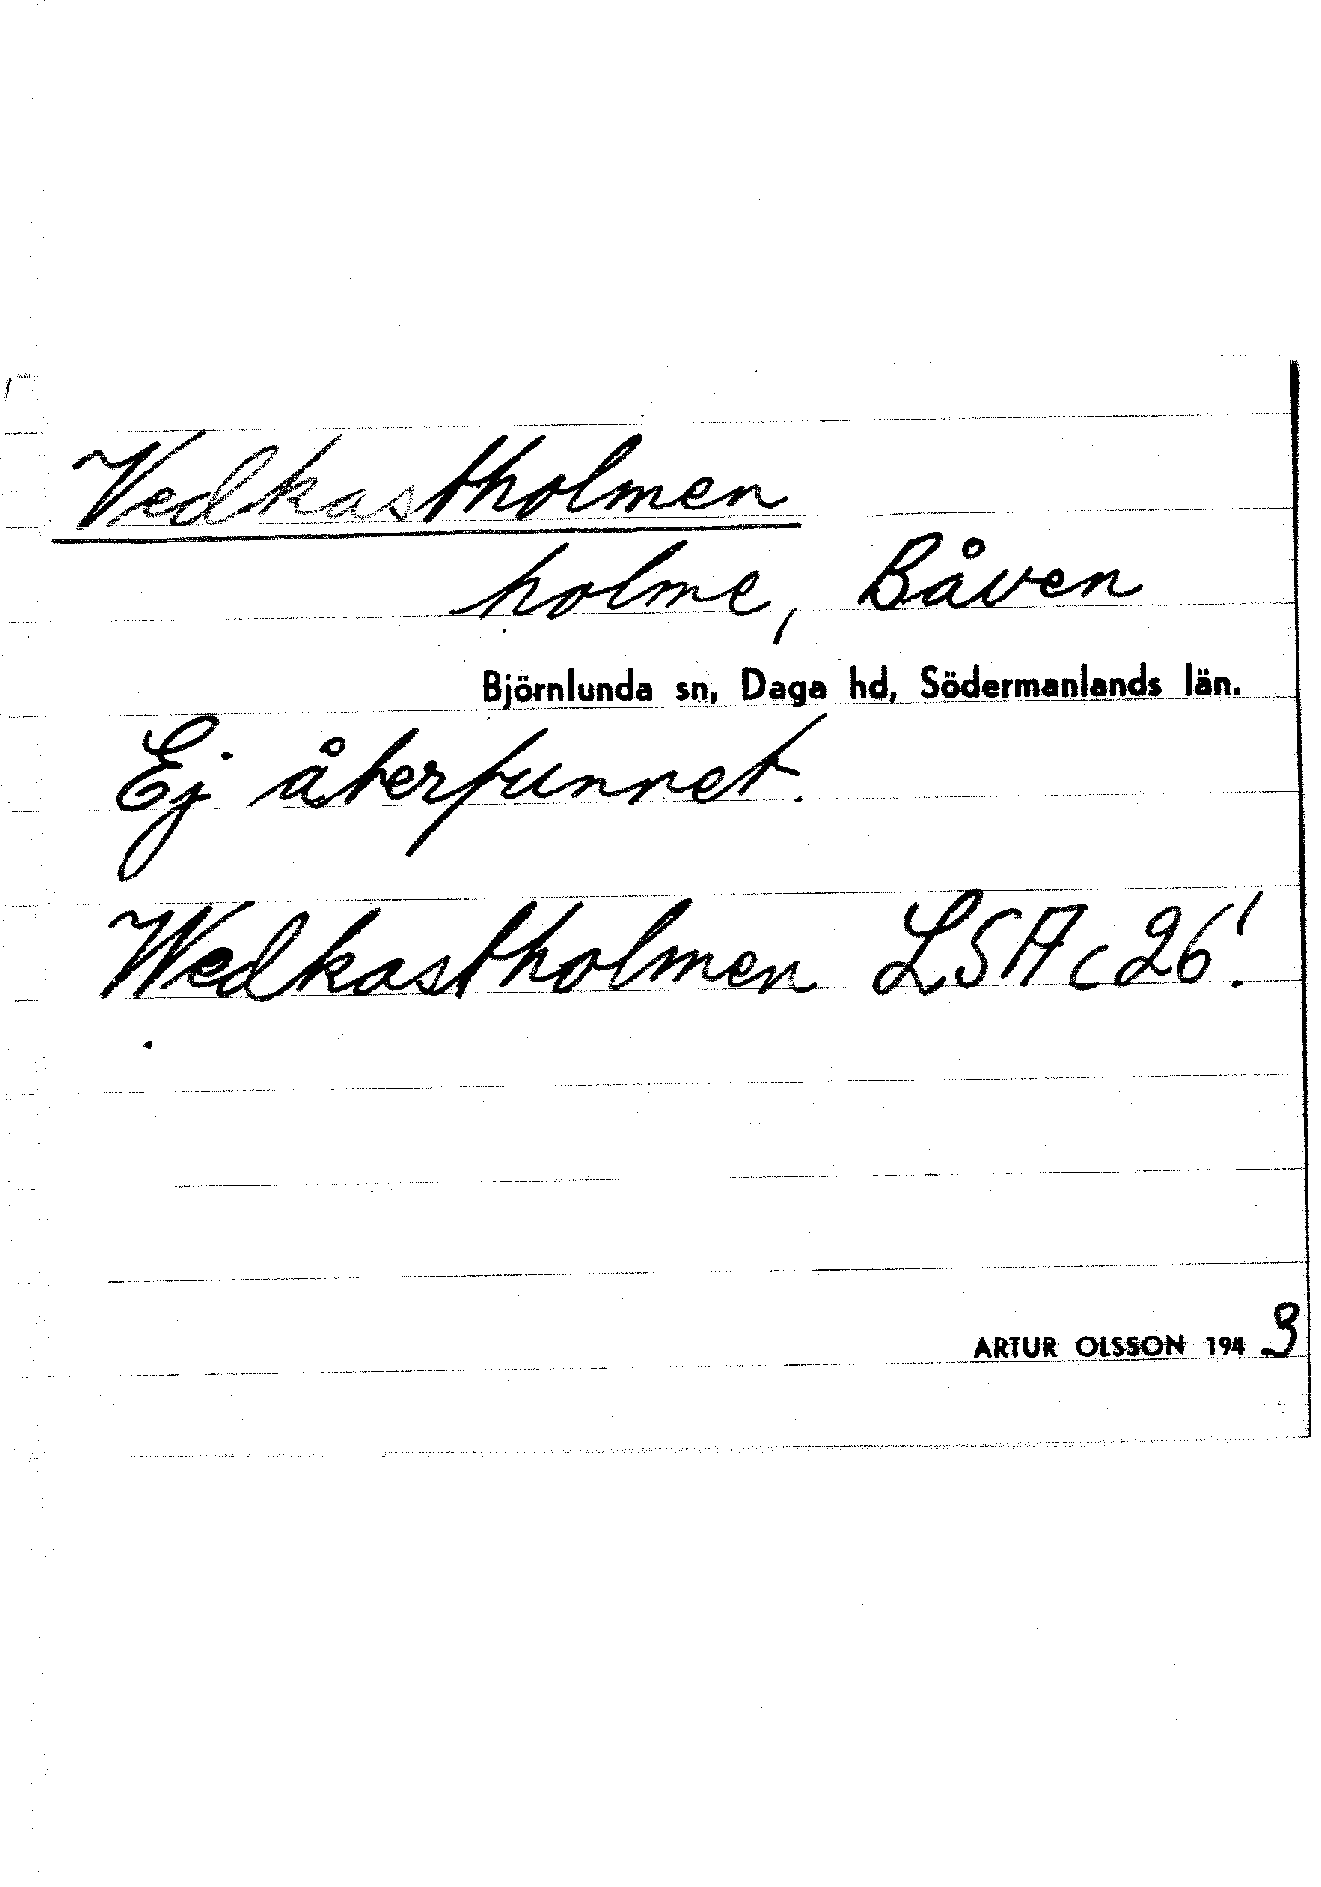 Vedkastholmen
holme, Båven
Björnlunda sn, Daga hd, Södermanlands län.
Ej återfunnet.
Wedkastholmen LSA c 26!
ARTUR OLSSON 1943